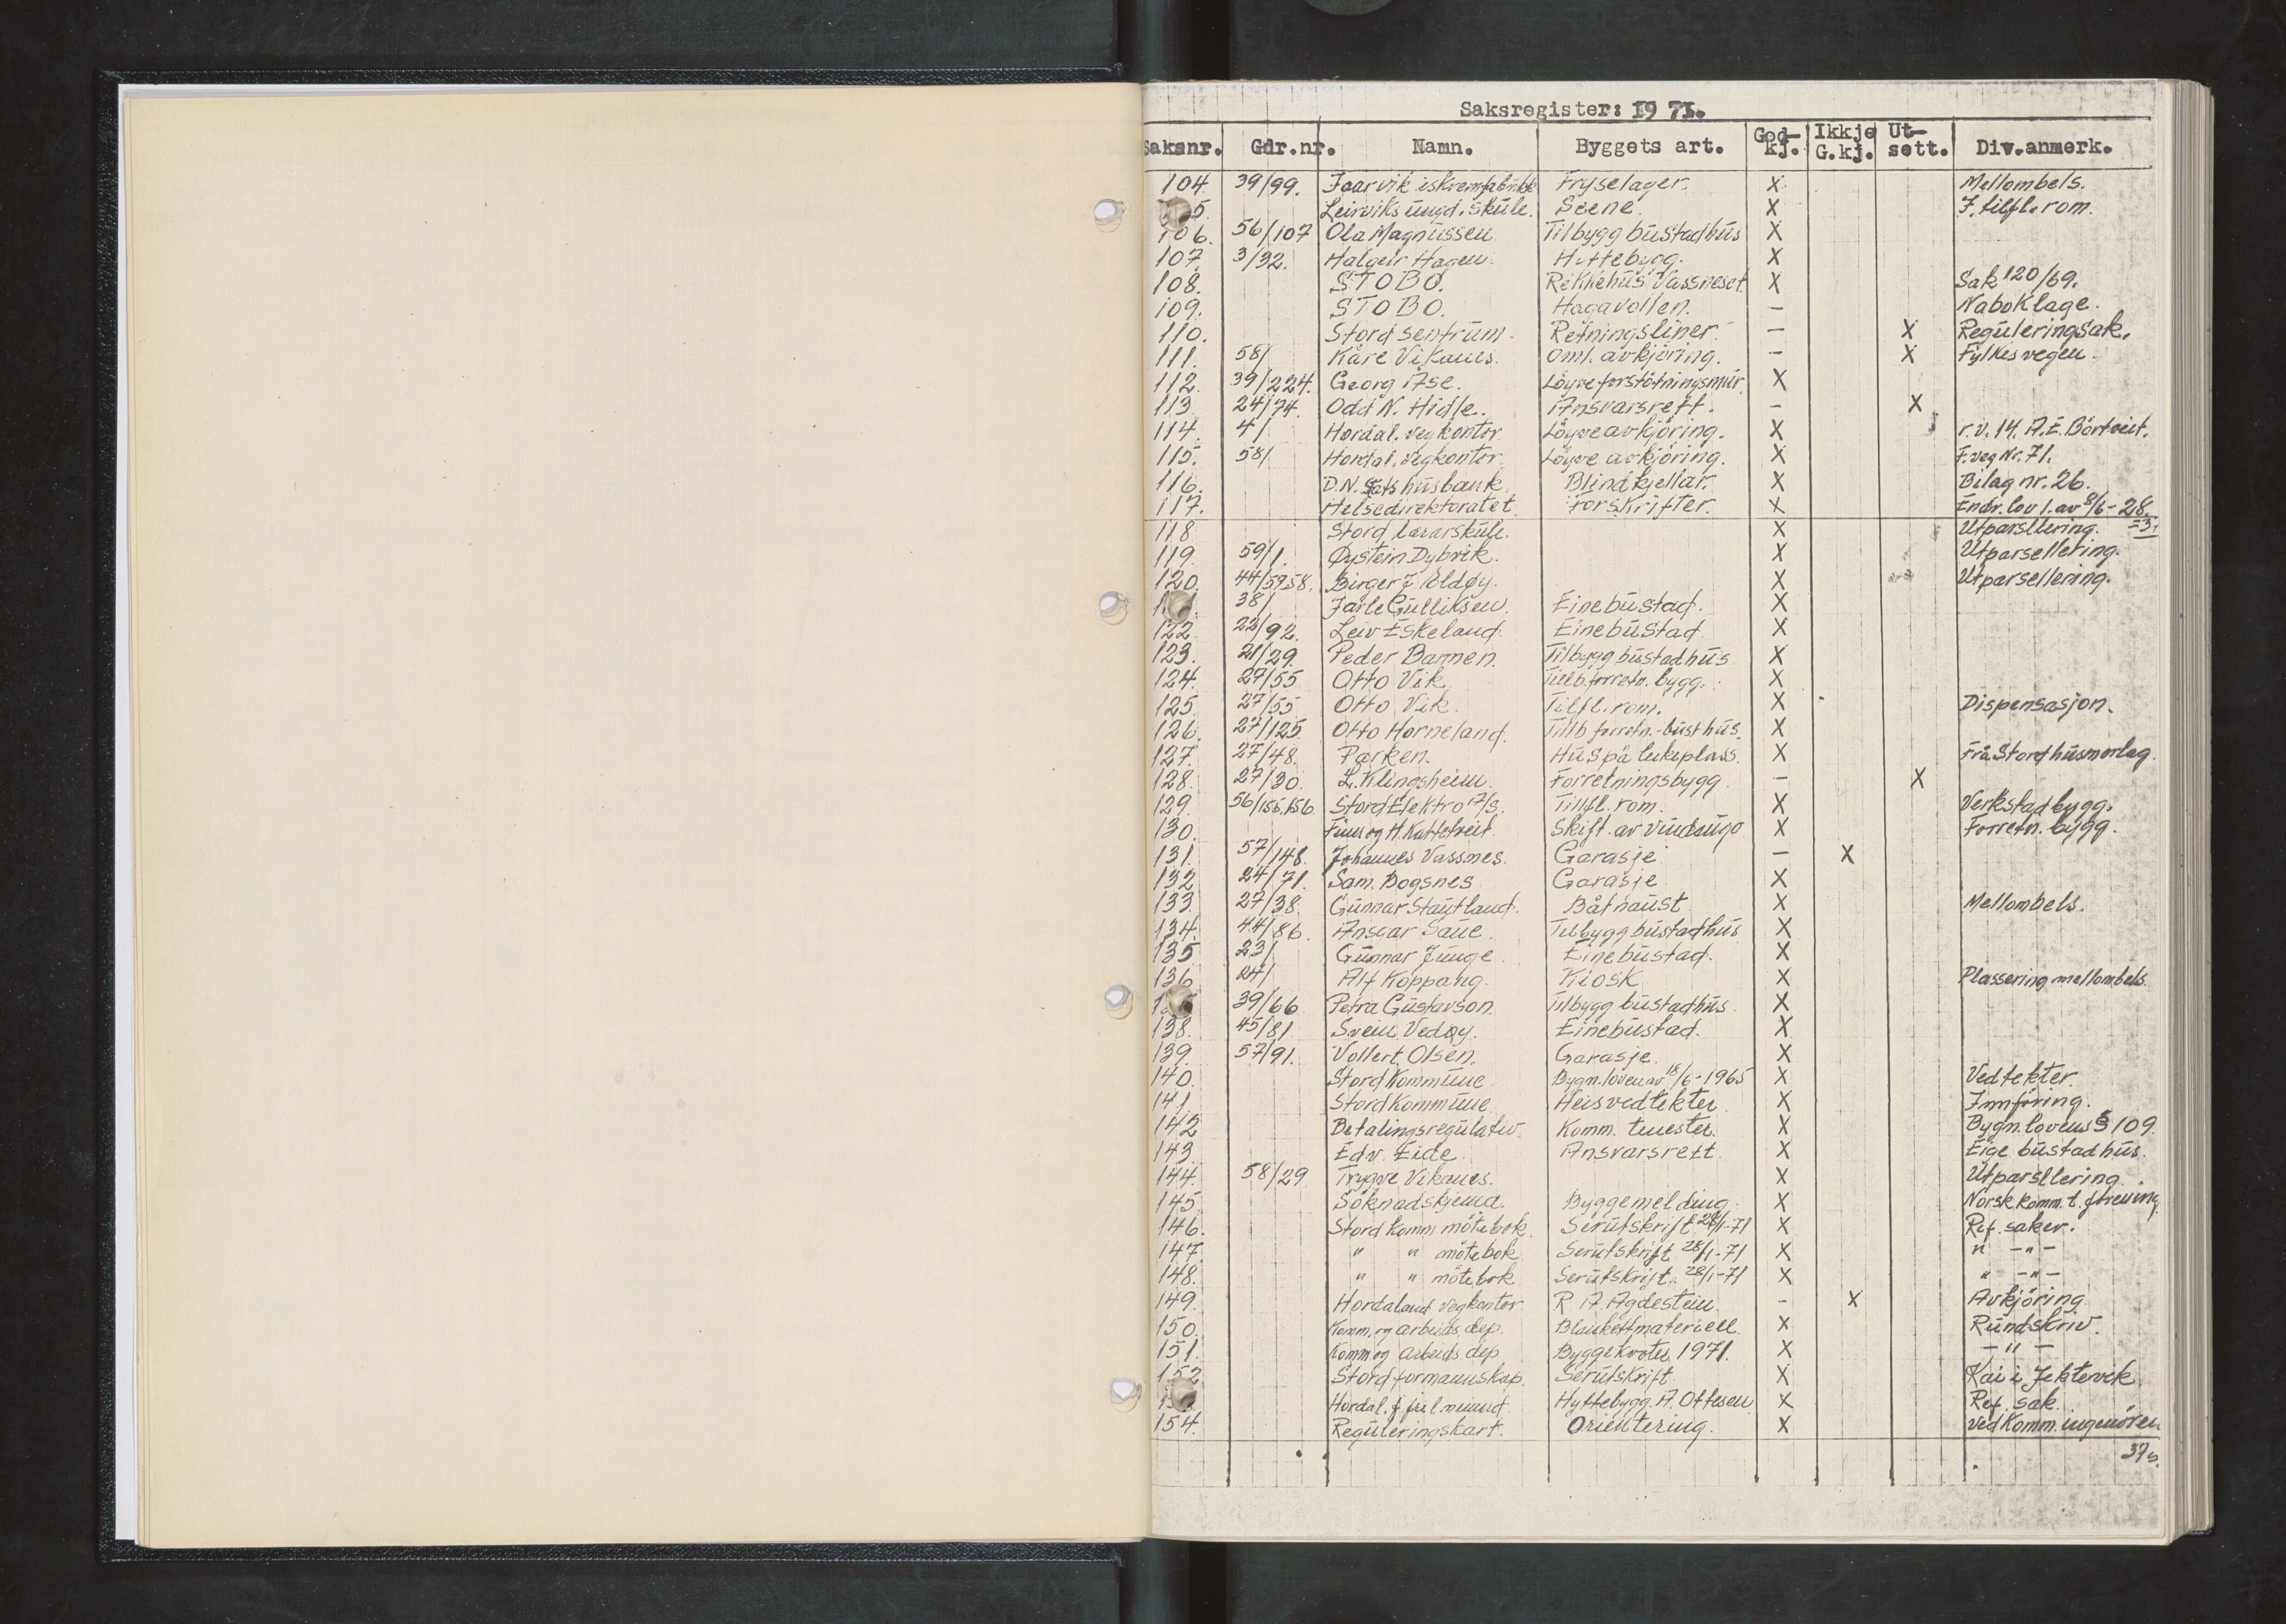 Saksregister: 19 71.
Saksnr. Gdr.nr. Namn. Byggets art. God-kj. Ikkje G.kj. Ut-sett. Div.anmerk.
104. 39/99. Jaarvik iskremfabrikk Fryselager. X Mellombels.
5. Leirviks ungd.skule. Scene. X J. tilfl.rom.
106. 56/107 Ola Magnussen Tilbygg bustadhus X
107. 3/32. Halgeir Hagen. Hyttebygg. X
108. STOBO. Rekkehus Vassneset X Sak 120/69.
109. STOBO. Hagavollen. – Naboklage.
110. Stord sentrum. Retningsliner. – X Reguleringsak.
111. 58/ Kåre Vikanes. Oml. avkjöring. – X Fylkesvegen.
112. 39/224. Georg Åse. Löyve forstötningsmur. X
113. 24/74. Odd N. Hidle. Ansvarsrett. – X
114. 4/ Hordal. vegkontor Löyve avkjöring. X r.v. 14. A.E. Börtveit.
115. 58/ Hordal. vegkontor Löyve avkjöring. X F.veg Nr. 71.
116. D.N. Stats husbank Blindkjellar. X Bilag nr. 26.
117. Helsedirektoratet. Forskrifter. X Endr. lov 1. av 8/6-28.
118 Stord lærarskule. X Utparsllering. =3.
119. 59/1. Øystein Dybvik. X Utparsellering.
120. 44/59.58. Birger J. Eldøy. X Utparsellering.
1 38/ Jarle Gulliksen. Einebustad. X
122. 22/92. Leiv Eskeland. Einebustad X
123. 21/29. Peder Bammen. Tilbygg bustadhus X
124. 27/55 Otto Vik Tillb. forretn. bygg. X
125. 27/55 Otto Vik. Tilfl. rom. X Dispensasjon.
126. 27/125. Otto Horneland. Tillb forretn.-bust hus. X
127. 27/48. Parken. Hus på leikeplass. X Frå Stord husmorlag
128. 27/30. L. Klingsheim. Forretningsbygg – X
129. 56/155,156 Stord Elektro A/S. Tillfl. rom. X Verkstadbygg.
130. Finn og H. Kattetveit. Skift. av vindaugo X Forretn. bygg.
131. 57/148. Johannes Vassnes. Garasje – X
132. 24/71. Sam. Bogsnes Garasje X
133. 27/38. Gunnar Stautland. Båtnaust X Mellombels.
134. 44/86. Ansgar Saue. Tilbygg bustadhus X
135 23/ Gunnar Junge. Einebustad. X
136 24/ Alf Koppang. Kiosk X Plassering mellombels.
1 39/66 Petra Gustavson Tilbygg bustadhus X
138. 45/81 Svein Vedøy. Einebustad. X
139. 57/91. Vollert Olsen. Garasje. X
140. Stord Kommune Bygn.loven av 18/6-1965 X Vedtekter
141 Stord kommune Heisvedtekter X Innföring.
142 Betalingsregulativ. Komm. tenester. X Bygn.lovens § 109
143 Edv. Eide Ansvarsrett X Eige bustadhus.
144. 58/29 Trygve Vikanes. X Utparsllering.
145 Söknadskjema. Byggemelding. X Norsk komm. t. forening
146. Stord komm mötebok Serutskrift 28/1-71 X Ref. saker.
147. " " mötebok Serutskrift 28/1-71 X " -"-
148. " " mötebok Serutskrift. 28/1-71 X " -"-
149. Hordaland vegkontor R. A. Agdestein. – X Avkjöring
150. Komm. og arbeids dep. Blankettmateriell. X Rundskriv.
151. Komm og arbeids dep Byggekvoter 1971. X -"-
152 Stord formannskap. Serutskrift X Kai i Jektevik
15 Hordal. f Hyttebygg A. Ottesen X Ref. sak.
154. Reguleringskart. Orientering. X ved Komm. ingeniören
37s.